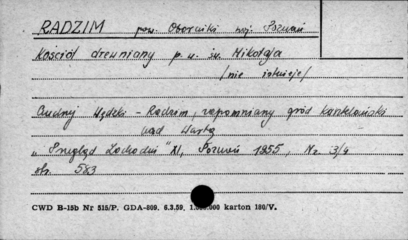 RADZIM pow. Oborniki woj. Poznań
Kościół drewniany p. w. św. Mikołaja
/nie istnieje/
Andrzej Wędzki - Radzim, zapomniany gród kasztelański
nad Wartą
„Przegląd Zachodni" XI, Poznań 1955, Nr. 3/4
str. 583
CWD B-15b Nr 515/P. GDA-809. 6.3.59. 1.000.000 karton 180/V.